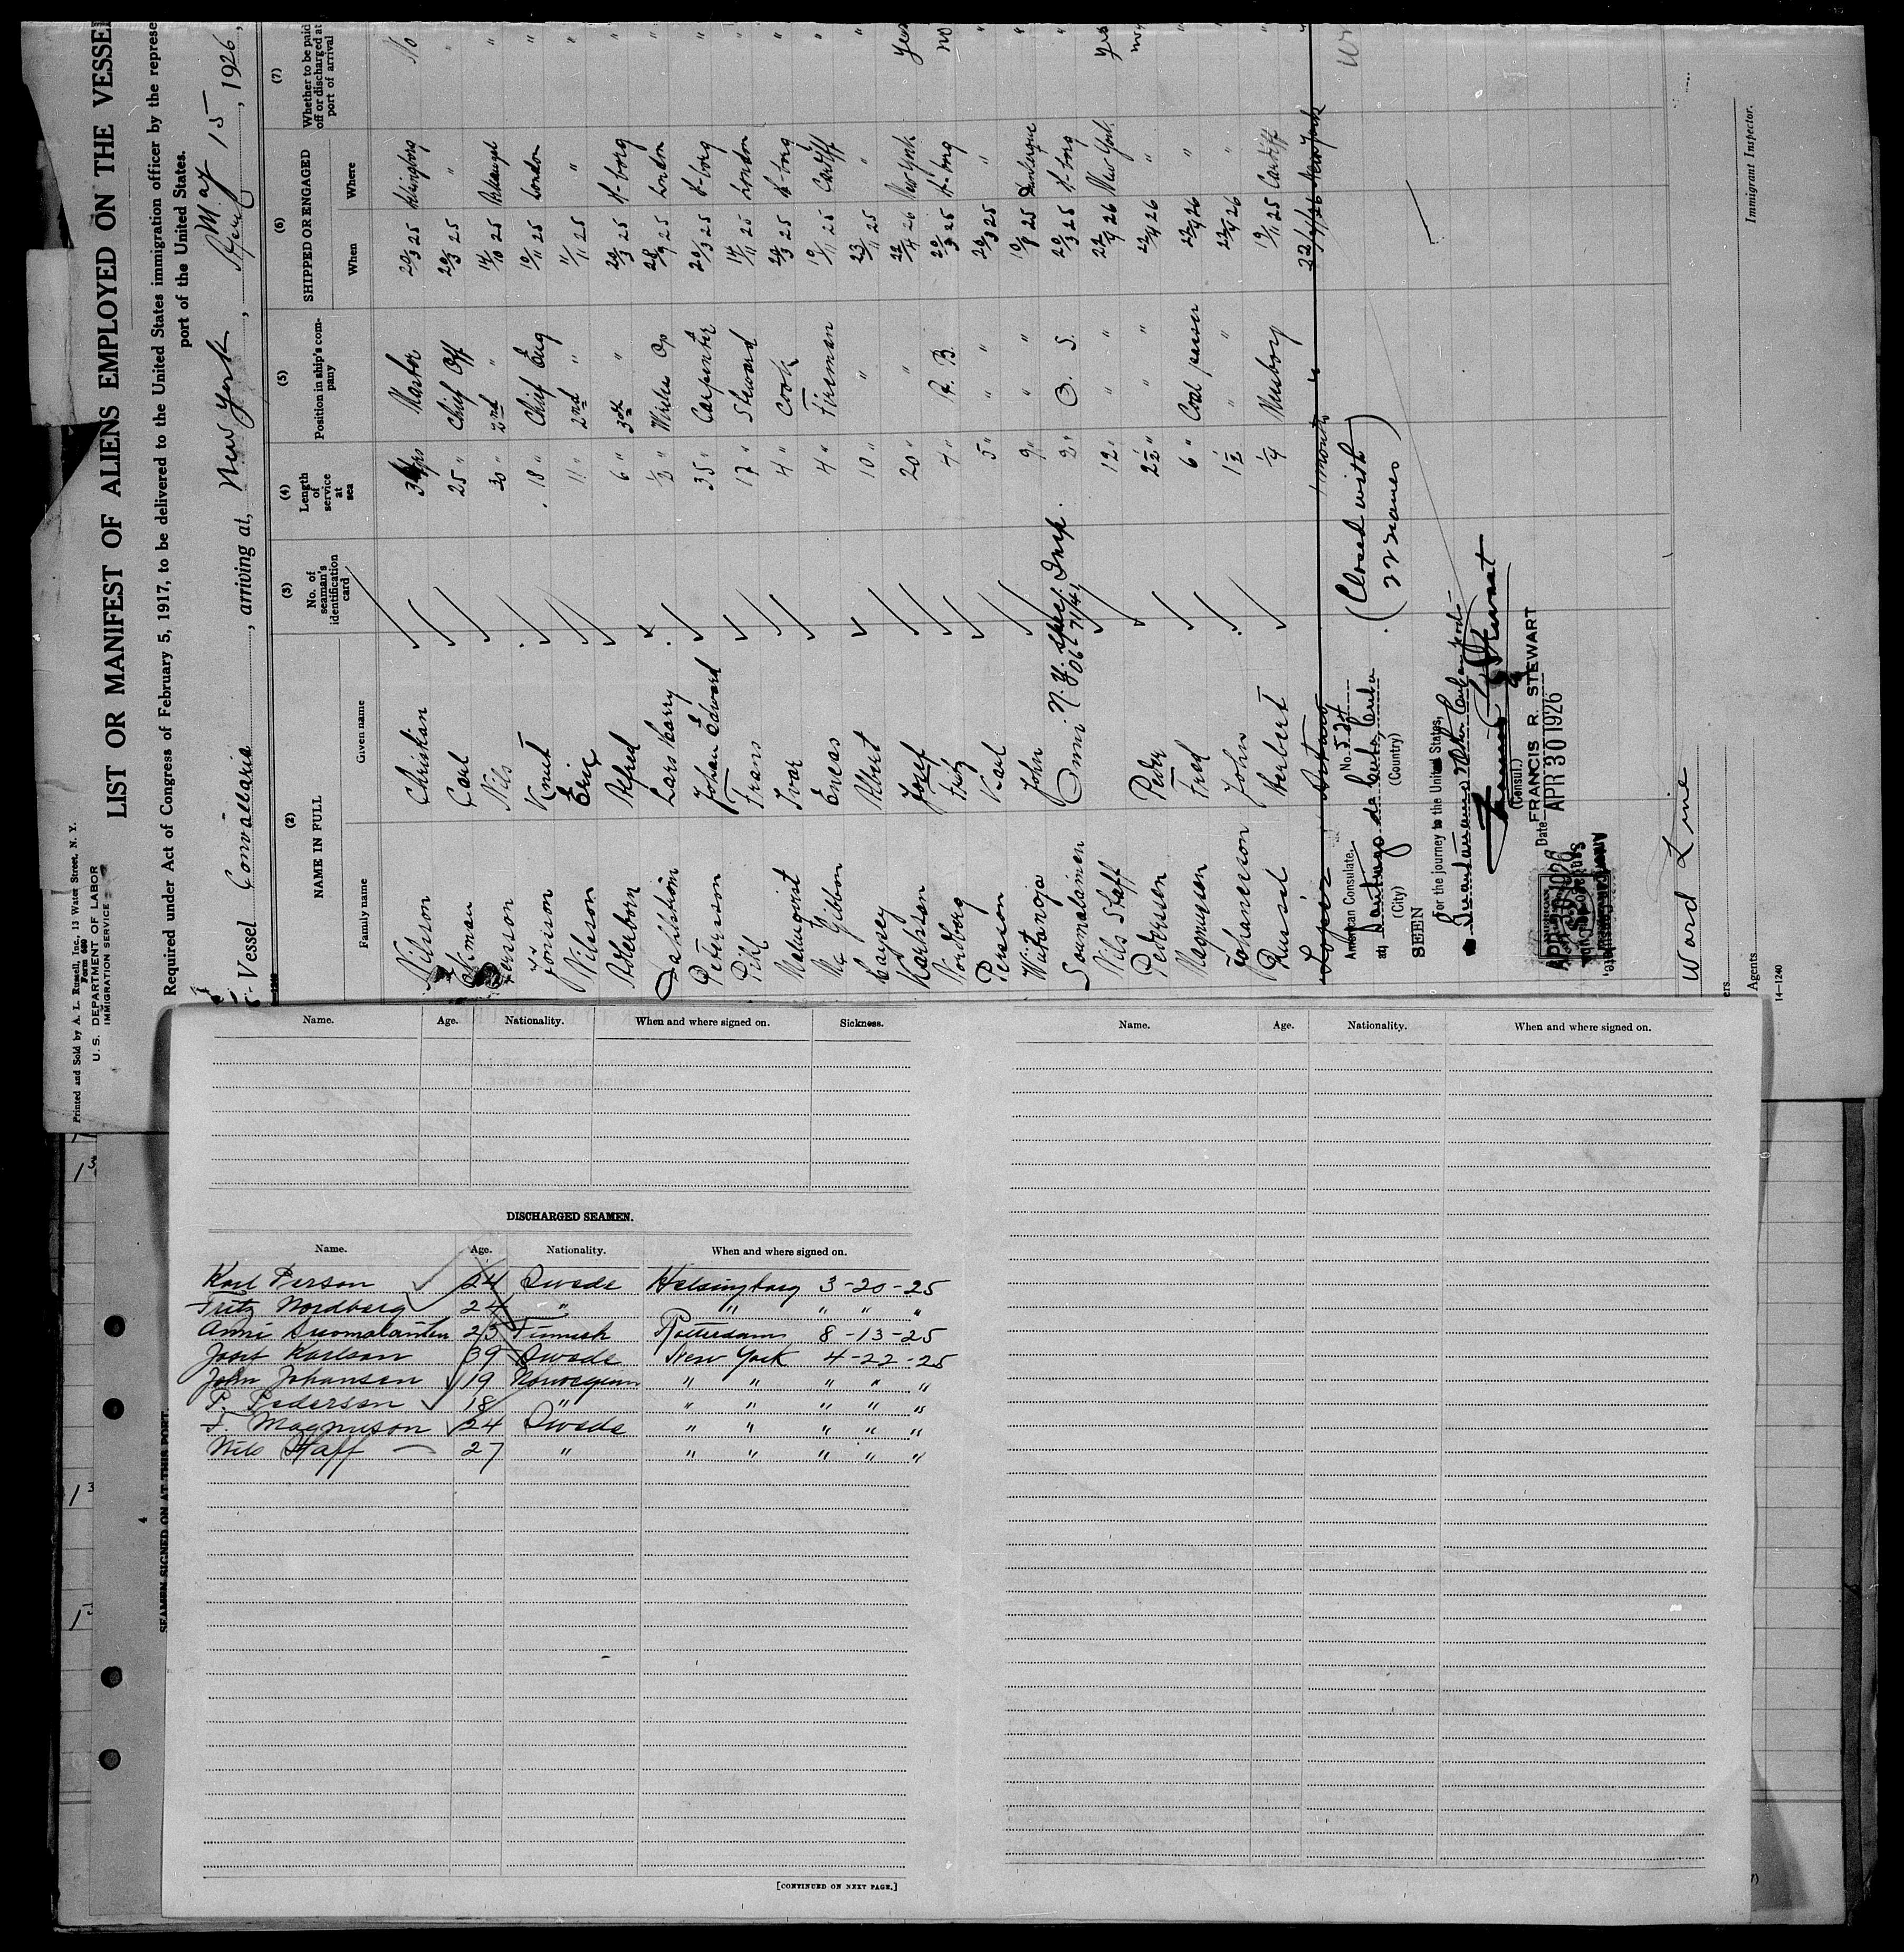 Printed and Sold by A. L. Russell, Inc., 13 Water Street, N. Y.
Form 680
U. S. DEPARTMENT OF LABOR
IMMIGRATION SERVICE
LIST OR MANIFEST OF ALIENS EMPLOYED ON THE VESSEL
Required under Act of Congress of February 5, 1917, to be delivered to the United States immigration officer by the represe
port of the United States.
Vessel Convallaria, arriving at, New York, May 15, 1926,
(2) (3) (4) (5) (6) (7)
NAME IN FULL No. of seaman's identification card Length of service at sea Position in ship's company SHIPPED OR ENGAGED Whether to be paid off or discharged at port of arrival
Family name Given name When Where
Nilsson Christian Master 20/3 25 No
Carl 25 " Chief Off 20/3 25 " "
Nils 20 " 2nd " 14/10 25 "
Knut 18 " Chief Eng 10/11 25 London "
Nilsson Eric 11 " 2nd " 11/11 25 " "
Adlerborn Alfred 6 " 3rd " 20/3 25 H-borg "
Dahlström Lars Harry " Wireless Op 25 London "
Peterson Johan Edward 35 " Carpenter 20/3 25 H-borg "
Pihl Frans 17 " Steward 14/11 25 London "
Malmqvist Ivar 4 " Cook 20/3 25 H-borg "
Mc Gibbon Eneas 4 " Fireman 10/11 25 Cardiff "
Albert 10 " " 23/11 25 " "
Karlsson Josef 20 " " 22/4 26 New York Yes
Nordberg Fritz 4 " A. B. 20/3 25 H-borg no
Persson Karl 5 " " 20/3 25 " "
John 9 " " 25 Dunkerque "
Soumalainen Onni 2 " O. S. 20/3 25 H-borg "
N. Y. Spec. Insp.
Nils Staff 12 " " 22/4 26 New York Yes
Pedersen Peder 2½ " " 22/4 26 " no
Magnusson Fred 6 " Coal passer 22/4 26 " "
Johanesson John 1½ " " 22/4 26 " "
Russel Herbert ¼ Messboy 19/11 25 Cardiff "
Lopez Arturo 1 month " 22/4/26 New York "
(Closed with
22 names)
American Consulate. No. 52
at Santiago de Cuba, Cuba
(City) (Country)
SEEN
For the journey to the United States,
(Consul.)
FRANCIS R. STEWART
Date APR 30 1926
APR 30 1926
Ward Line
Agents
Immigrant Inspector.
14—1240
Name. Age. Nationality. When and where signed on. Sickness.
Name. Age. Nationality. When and where signed on.
DISCHARGED SEAMEN.
Name. Age. Nationality. When and where signed on.
Karl Person 24 Swede Helsingborg 3-20-25
Fritz Nordberg 24 " " " " "
Anni Suomalainen 25 Finnish Rotterdam 8-13-25
Josef Karlson 39 Swede New York 4-22-25
John Johansen 19 Norwegian " " " " "
P. Pederson 18 " " " " " "
F. Magnuson 24 Swede " " " " "
Nils Staff 27 " " " " " "
[CONTINUED ON NEXT PAGE.]
4
SEAMEN SIGNED ON AT THIS PORT.